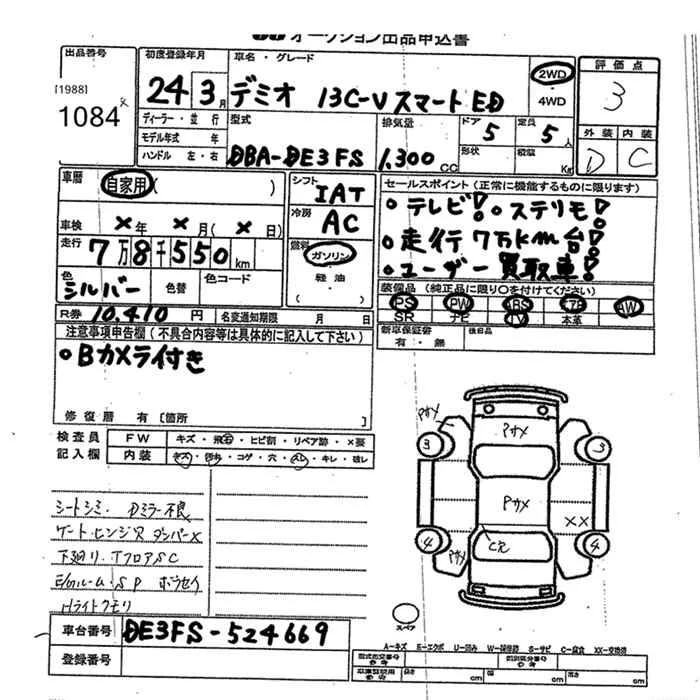 オークション出品申込書
出品番号
[1988]
1084
初度登録年月
24年3月
車名・グレード
デミオ 13C-V スマートED
2WD
4WD
評価点
3
外装 内装
D C
ディーラー・並行
モデル年式 年
ハンドル 左・右
型式
DBA-DE3FS
排気量
1,300cc
ドア
5
形状
定員
5人
積載
Kg
車歴
自家用( )
車検 ×年 ×月(×日)
走行
7万8千550km
色
シルバー
色替
色コード
シフト
IAT
冷房
AC
燃料
ガソリン
軽油
セールスポイント(正常に機能するものに限ります)
・テレビ! ・ステリモ!
・走行7万km台!
・ユーザー買取車!
装備品(純正品に限り○を付けてください)
PS PW ABS AB AW
SR ナビ TV 本革
新車保証書
有・無
後日品
R券 10,410円
名変通知期限 月 日
注意事項申告欄(不具合内容等は具体的に記入して下さい)
・Bカメラ付き
修復歴 有 [箇所 ]
検査員
記入欄
FW キズ・飛石・ヒビ割・リペア跡・×要
内装 キズ・汚れ・コゲ・穴・スレ・キレ・破レ
シートシミ. Dミラー不良
ゲート・ヒンジス ダンパー×
下廻リ.TフロアSC
E/Gルーム・SP
Hライトクモリ
車台番号
DE3FS-524669
登録番号
Pサメ
Pサメ
Pサメ
Pサメ
3
3
4
4
××
C穴
スペア
A-キズ E-エクボ U-凹み W-補修跡 S-サビ C-腐食 XX-交換済
型式指定番号
類別区分番号
参考
長さ cm 幅 cm 高さ cm